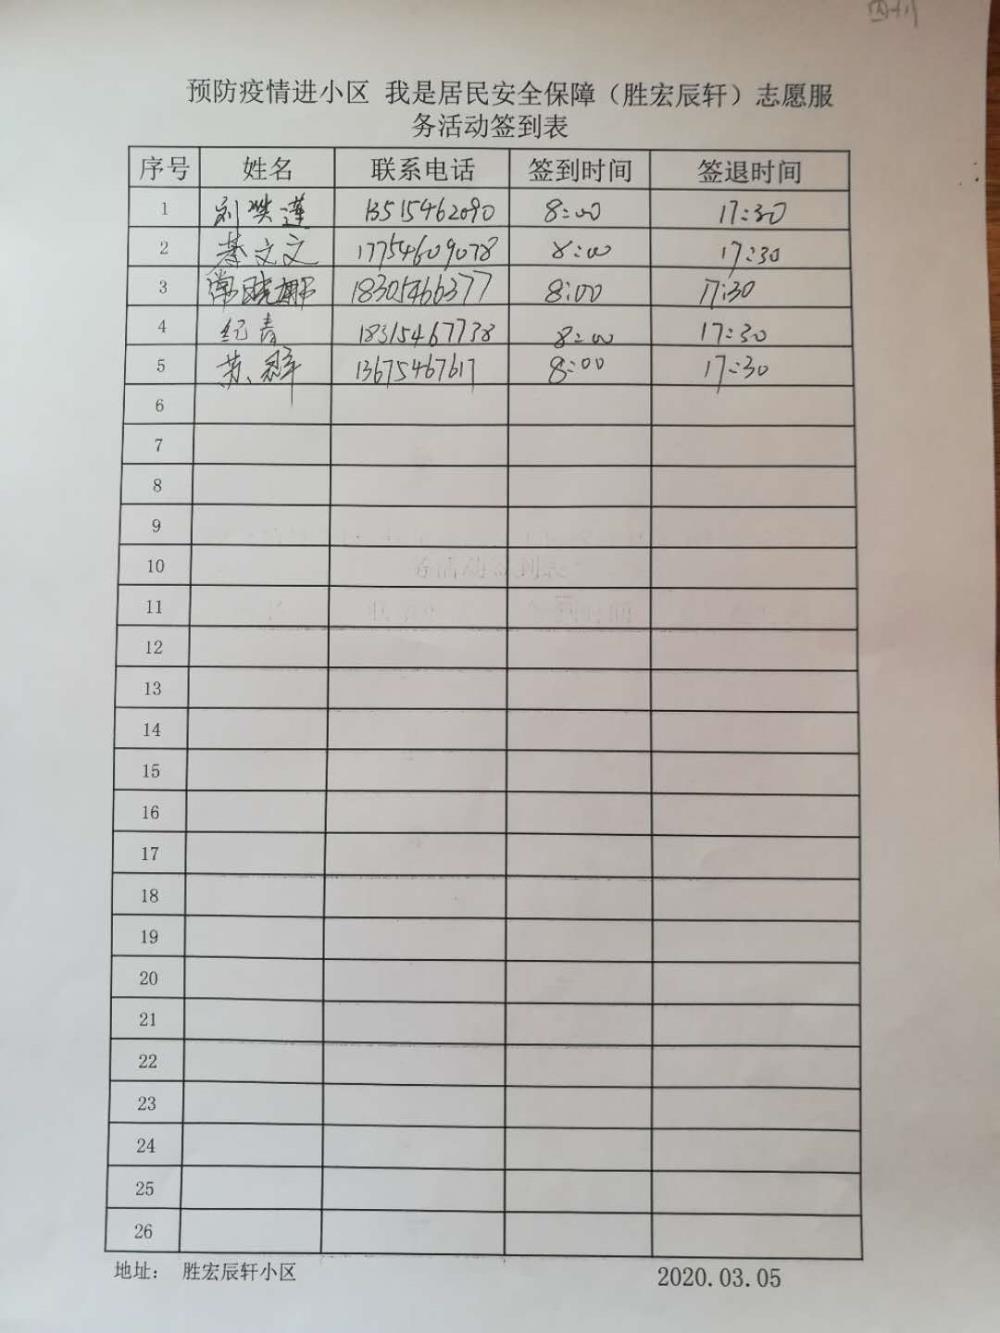 预防疫情进小区 我是居民安全保障（胜宏辰轩）志愿服
务活动签到表
序号 姓名 联系电话 签到时间 签退时间
1 刘 莲 13515462090 8:00 17:30
2 綦文文 17754609078 8:00 17:30
3 常晓娜 18305466377 8:00 17:30
4 纪青 18315467738 8:00 17:30
5 苏 13675467617 8:00 17:30
6
7
8
9
10
11
12
13
14
15
16
17
18
19
20
21
22
23
24
25
26
地址： 胜宏辰轩小区 2020.03.05